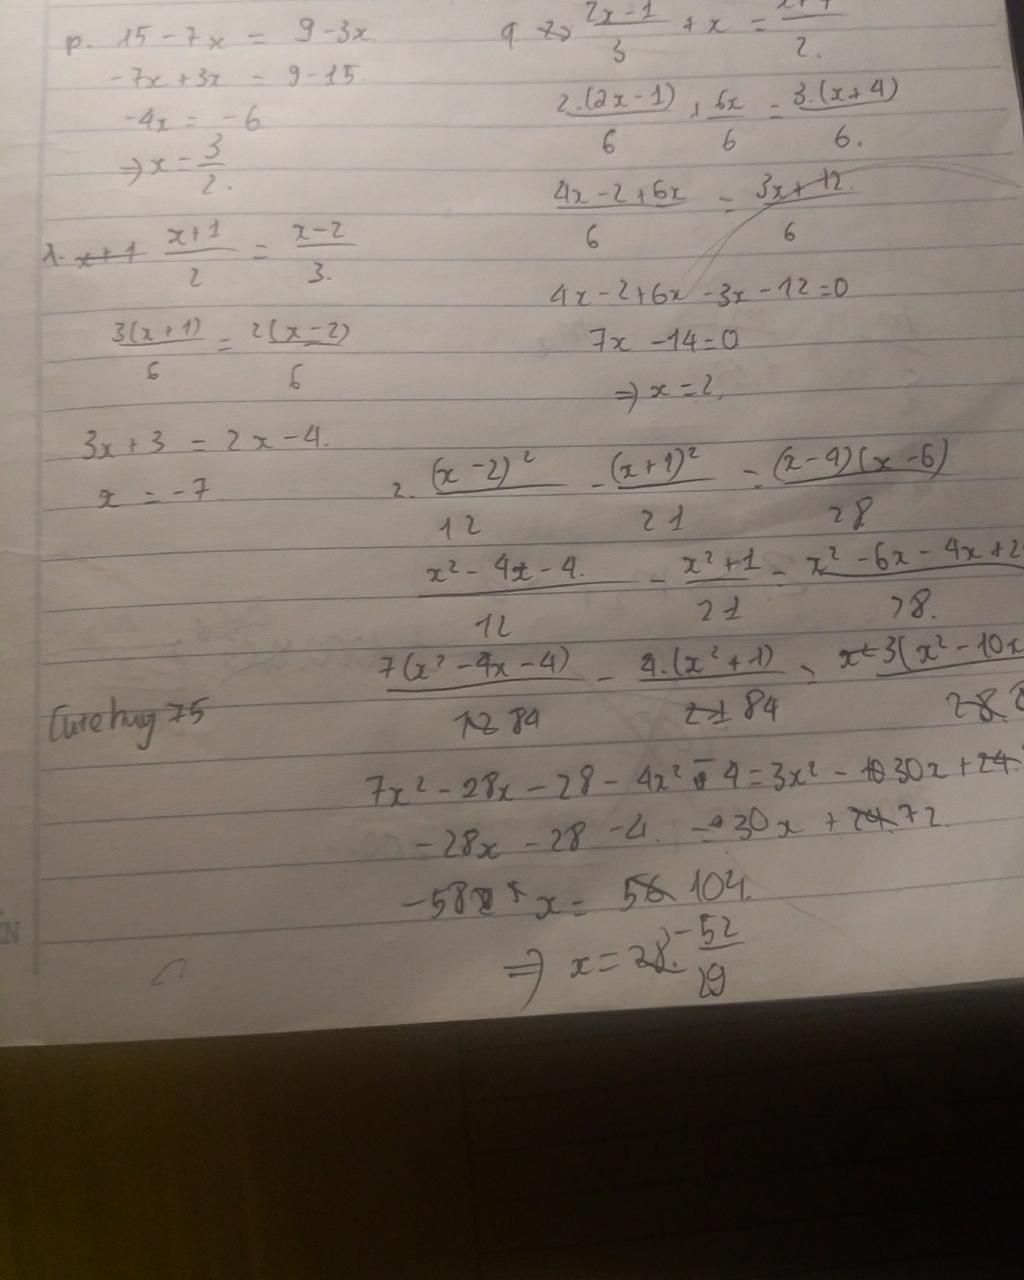 p. 15 - 7x = 9 - 3x
-7x + 3x = 9 - 15
-4x = -6
⇒ x = 3/2.
x+1 (x+1)/2 = (x-2)/3.
3(x+1)/6 = 2(x-2)/6
3x + 3 = 2x - 4.
x = -7
q (2x-1)/3 + x = (x+4)/2.
2.(2x-1)/6 + 6x/6 = 3.(x+4)/6.
(4x-2+6x)/6 = (3x+12)/6
4x-2+6x-3x-12=0
7x-14=0
⇒ x = 2.
2. (x-2)²/12 - (x+1)²/21 = (x-4)(x-6)/28
(x²-4x-4)/12 - (x²+1)/21 = x²-6x-4x+2 /28.
7(x²-4x-4)/84 - 4.(x²+1)/84 = 3(x²-10x
7x²-28x-28-4x²-4=3x²-30x+24
-28x-28-4 = -30x+72
-58x = 104
⇒ x = -52/29
75